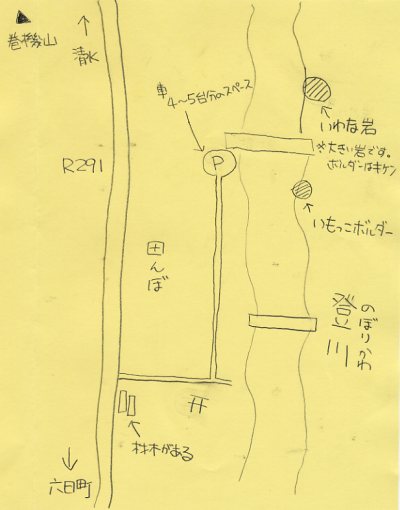 巻機山
清水
車
4〜5台分のスペース
いわな岩
※大きい岩です。
ボルダーはキケン
R291
P
いもっこボルダー
田んぼ
登川
のぼりかわ
材木がある
六日町